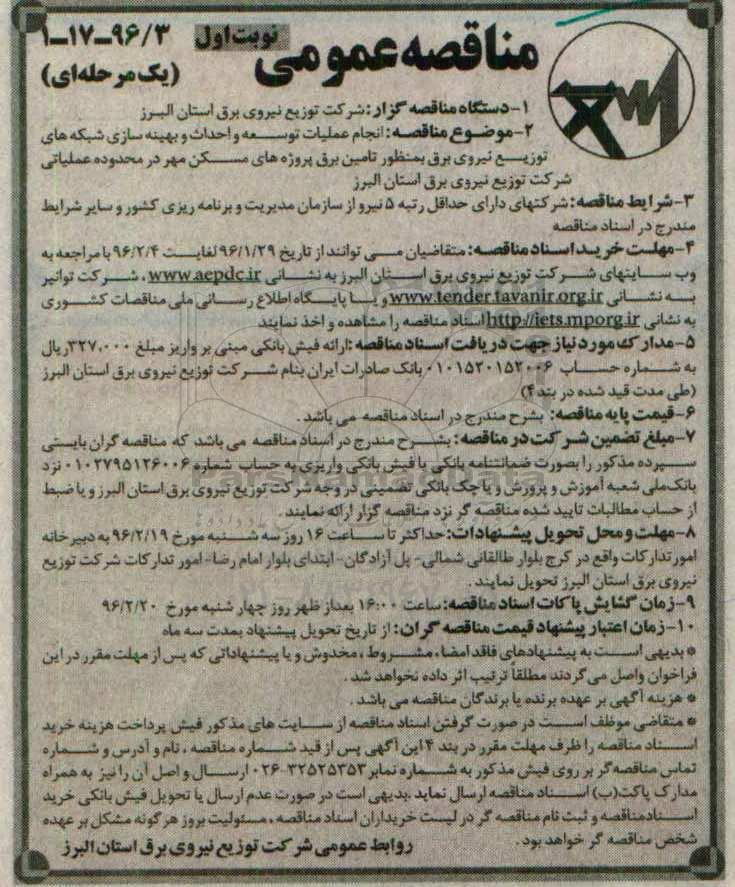 مناقصه عمومی
نوبت اول
۹۶/۳-۱۷-۱
(یک مرحله‌ای)
۱- دستگاه مناقصه گزار: شرکت توزیع نیروی برق استان البرز
۲- موضوع مناقصه: انجام عملیات توسعه و احداث و بهینه سازی شبکه های
توزیع نیروی برق بمنظور تامین برق پروژه های مسکن مهر در محدوده عملیاتی
شرکت توزیع نیروی برق استان البرز
۳- شرایط مناقصه: شرکتهای دارای حداقل رتبه ۵ نیرو از سازمان مدیریت و برنامه ریزی کشور و سایر شرایط
مندرج در اسناد مناقصه
۴- مهلت خرید اسناد مناقصه: متقاضیان می توانند از تاریخ ۹۶/۱/۲۹ لغایت ۹۶/۲/۴ با مراجعه به
وب سایتهای شرکت توزیع نیروی برق استان البرز به نشانی www.aepdc.ir، شرکت توانیر
به نشانی www.tender.tavanir.org.ir و یا پایگاه اطلاع رسانی ملی مناقصات کشوری
به نشانی http://iets.mporg.ir اسناد مناقصه را مشاهده و اخذ نمایند
۵- مدارک مورد نیاز جهت دریافت اسناد مناقصه: ارائه فیش بانکی مبنی بر واریز مبلغ ۳۲۷,۰۰۰ ریال
به شماره حساب ۰۱۰۱۵۲۰۱۵۲۰۰۶ بانک صادرات ایران بنام شرکت توزیع نیروی برق استان البرز
(طی مدت قید شده در بند ۴)
۶- قیمت پایه مناقصه: بشرح مندرج در اسناد مناقصه می باشد.
۷- مبلغ تضمین شرکت در مناقصه: بشرح مندرج در اسناد مناقصه می باشد که مناقصه گران بایستی
سپرده مذکور را بصورت ضمانتنامه بانکی یا فیش بانکی واریزی به حساب شماره ۰۱۰۲۷۹۵۱۲۶۰۰۶ نزد
بانک ملی شعبه آموزش و پرورش و یا چک بانکی تضمینی در وجه شرکت توزیع نیروی برق استان البرز و یا ضبط
از حساب مطالبات تایید شده مناقصه گر نزد مناقصه گزار ارائه نمایند.
۸- مهلت و محل تحویل پیشنهادات: حداکثر تا ساعت ۱۶ روز سه شنبه مورخ ۹۶/۲/۱۹ به دبیر خانه
امور تدارکات واقع در کرج بلوار طالقانی شمالی- پل آزادگان- ابتدای بلوار امام رضا- امور تدارکات شرکت توزیع
نیروی برق استان البرز تحویل نمایند.
۹- زمان گشایش پاکات اسناد مناقصه: ساعت ۱۶:۰۰ بعداز ظهر روز چهار شنبه مورخ ۹۶/۲/۲۰
۱۰- زمان اعتبار پیشنهاد قیمت مناقصه گران: از تاریخ تحویل پیشنهاد بمدت سه ماه
* بدیهی است به پیشنهادهای فاقد امضاء، مشروط، مخدوش و یا پیشنهاداتی که پس از مهلت مقرر در این
فراخوان واصل می گردند مطلقاً ترتیب اثر داده نخواهد شد.
* هزینه آگهی بر عهده برنده یا برندگان مناقصه می باشد.
* متقاضی موظف است در صورت گرفتن اسناد مناقصه از سایت های مذکور فیش پرداخت هزینه خرید
اسناد مناقصه را ظرف مهلت مقرر در بند ۴ این آگهی پس از قید شماره مناقصه، نام و آدرس و شماره
تماس مناقصه گر بر روی فیش مذکور به شماره نمابر ۳۲۵۲۵۳۵۳-۰۲۶ ارسال و اصل آن را نیز به همراه
مدارک پاکت(ب) اسناد مناقصه ارسال نماید. بدیهی است در صورت عدم ارسال یا تحویل فیش بانکی خرید
اسناد مناقصه و ثبت نام مناقصه گر در لیست خریداران اسناد مناقصه، مسئولیت بروز هر گونه مشکل بر عهده
شخص مناقصه گر خواهد بود.
روابط عمومی شرکت توزیع نیروی برق استان البرز